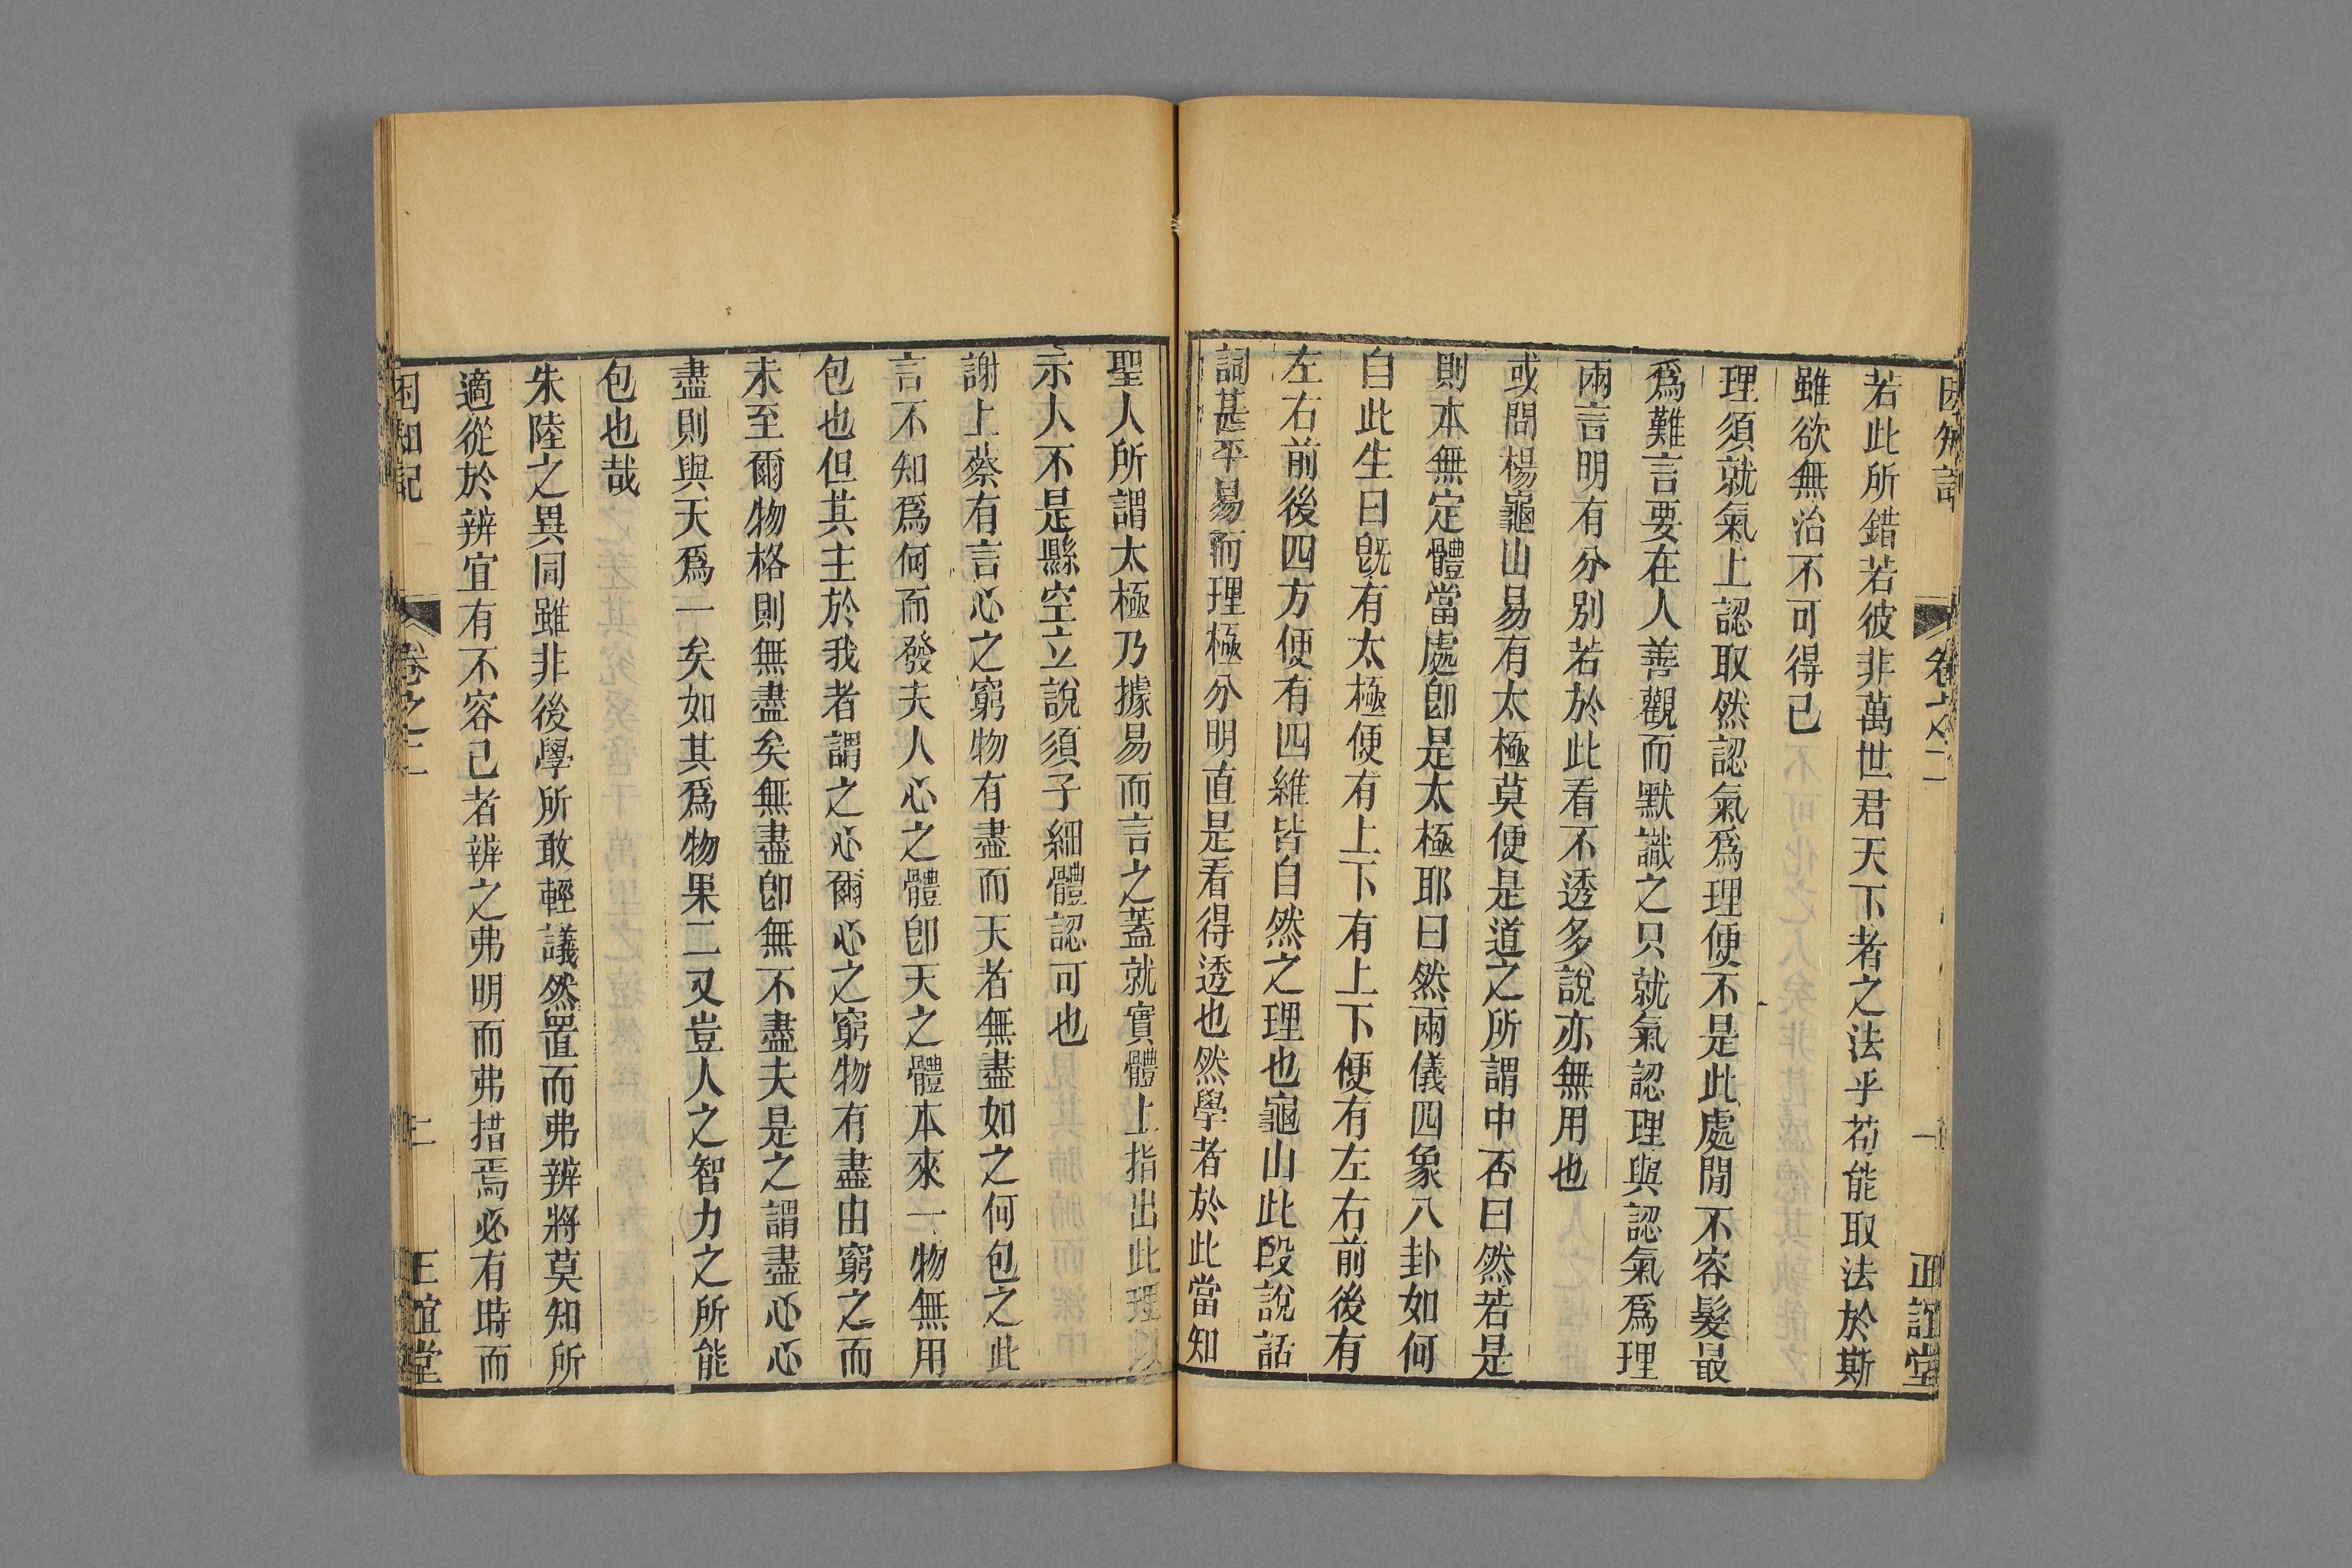 困知記 卷之二 一 正誼堂
若此所錯若彼非萬世君天下者之法乎苟能取法於斯
雖欲無治不可得已
理須就氣上認取然認氣爲理便不是此處閒不容髮最
爲難言要在人善觀而默識之只就氣認理與認氣爲理
兩言明有分別若於此看不透多說亦無用也
或問楊龜山易有太極莫便是道之所謂中否曰然若是
則本無定體當處卽是太極耶曰然兩儀四象八卦如何
自此生曰旣有太極便有上下有上下便有左右前後有
左右前後四方便有四維皆自然之理也龜山此段說話
詞甚平易而理極分明直是看得透也然學者於此當知
聖人所謂太極乃據易而言之蓋就實體上指出此理以
示人不是懸空立說須子細體認可也
謝上蔡有言心之窮物有盡而天者無盡如之何包之此
言不知爲何而發夫人心之體卽天之體本來一物無用
包也但其主於我者謂之心爾心之窮物有盡由窮之而
未至爾物格則無盡矣無盡卽無不盡夫是之謂盡心心
盡則與天爲一矣如其爲物果二又豈人之智力之所能
包也哉
朱陸之異同雖非後學所敢輕議然置而弗辨將莫知所
適從於辨宜有不容已者辨之弗明而弗措焉必有時而
困知記 卷之二 二 正誼堂